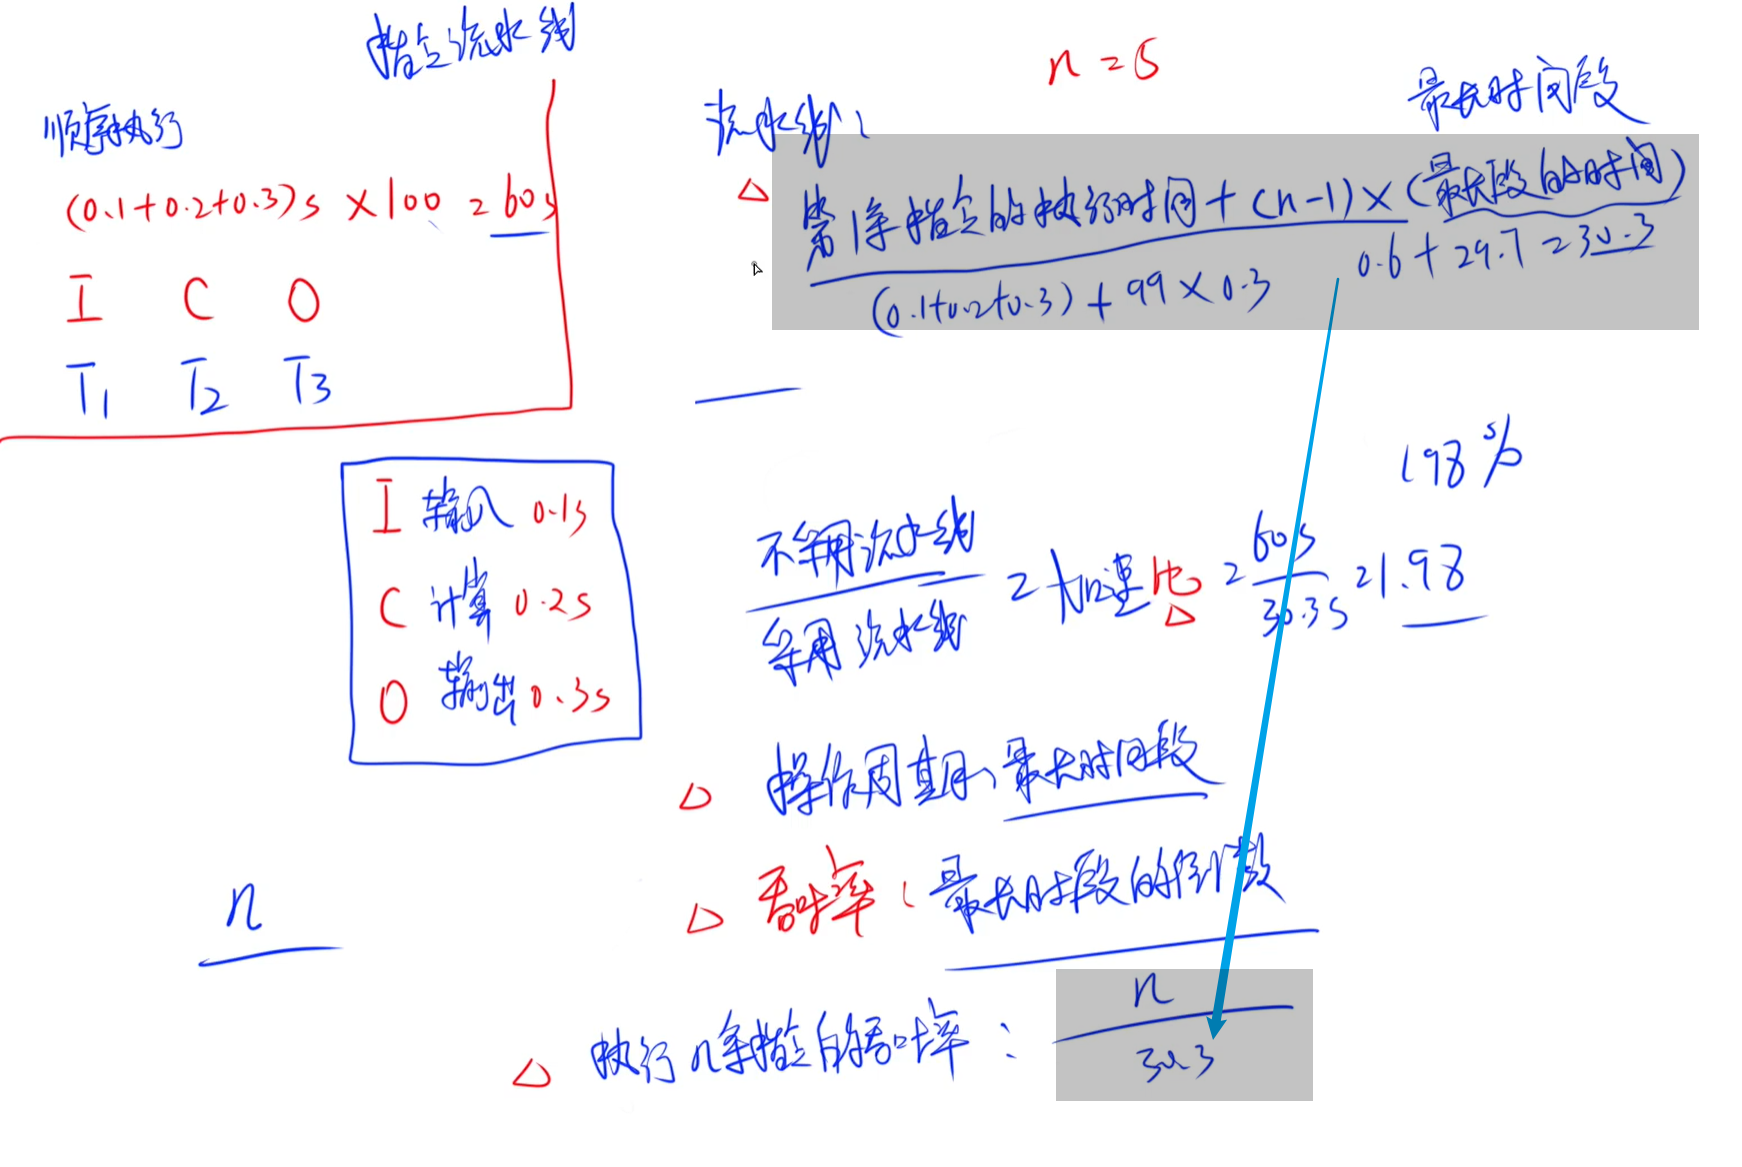 指令流水线
顺序执行
(0.1+0.2+0.3)s ×100 = 60s
I C O
T1 T2 T3
I 输入 0.1s
C 计算 0.2s
O 输出 0.3s
n
n = 5
最长时间段
流水线:
△ 第1条指令的执行时间 + (n-1) × (最长段的时间)
(0.1+0.2+0.3) + 99 × 0.3
0.6 + 29.7 = 30.3
198%
不采用流水线
采用流水线
= 加速比 = 60s / 30.3s = 1.98
△
△ 操作周期、最长时间段
△ 吞吐率: 最长时段的倒数
△ 执行n条指令的吞吐率: n / 30.3